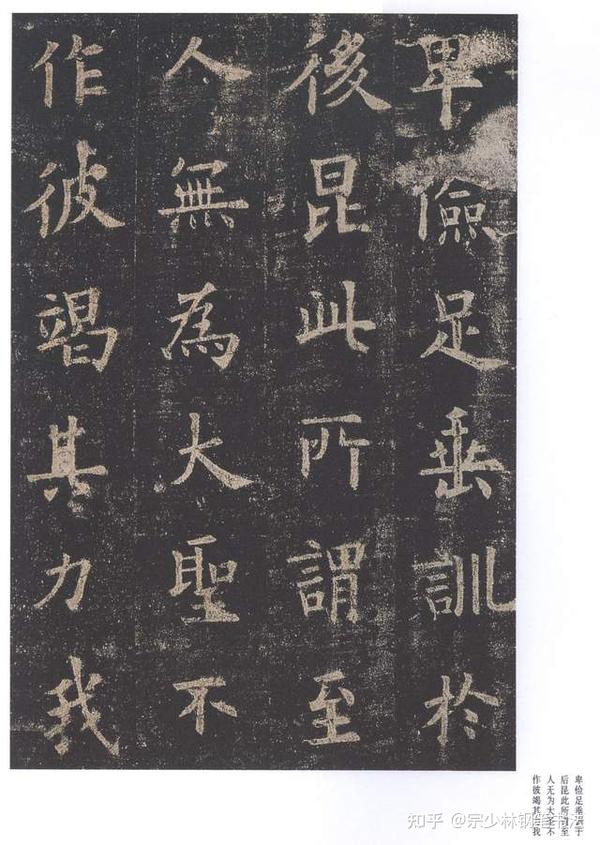 卑儉足垂訓於
後昆此所謂至
人無為大聖不
作彼竭其力我
卑俭足垂训于
后昆此所谓至
人无为大圣不
作彼竭其力我
知乎 @宗少林钢笔书法